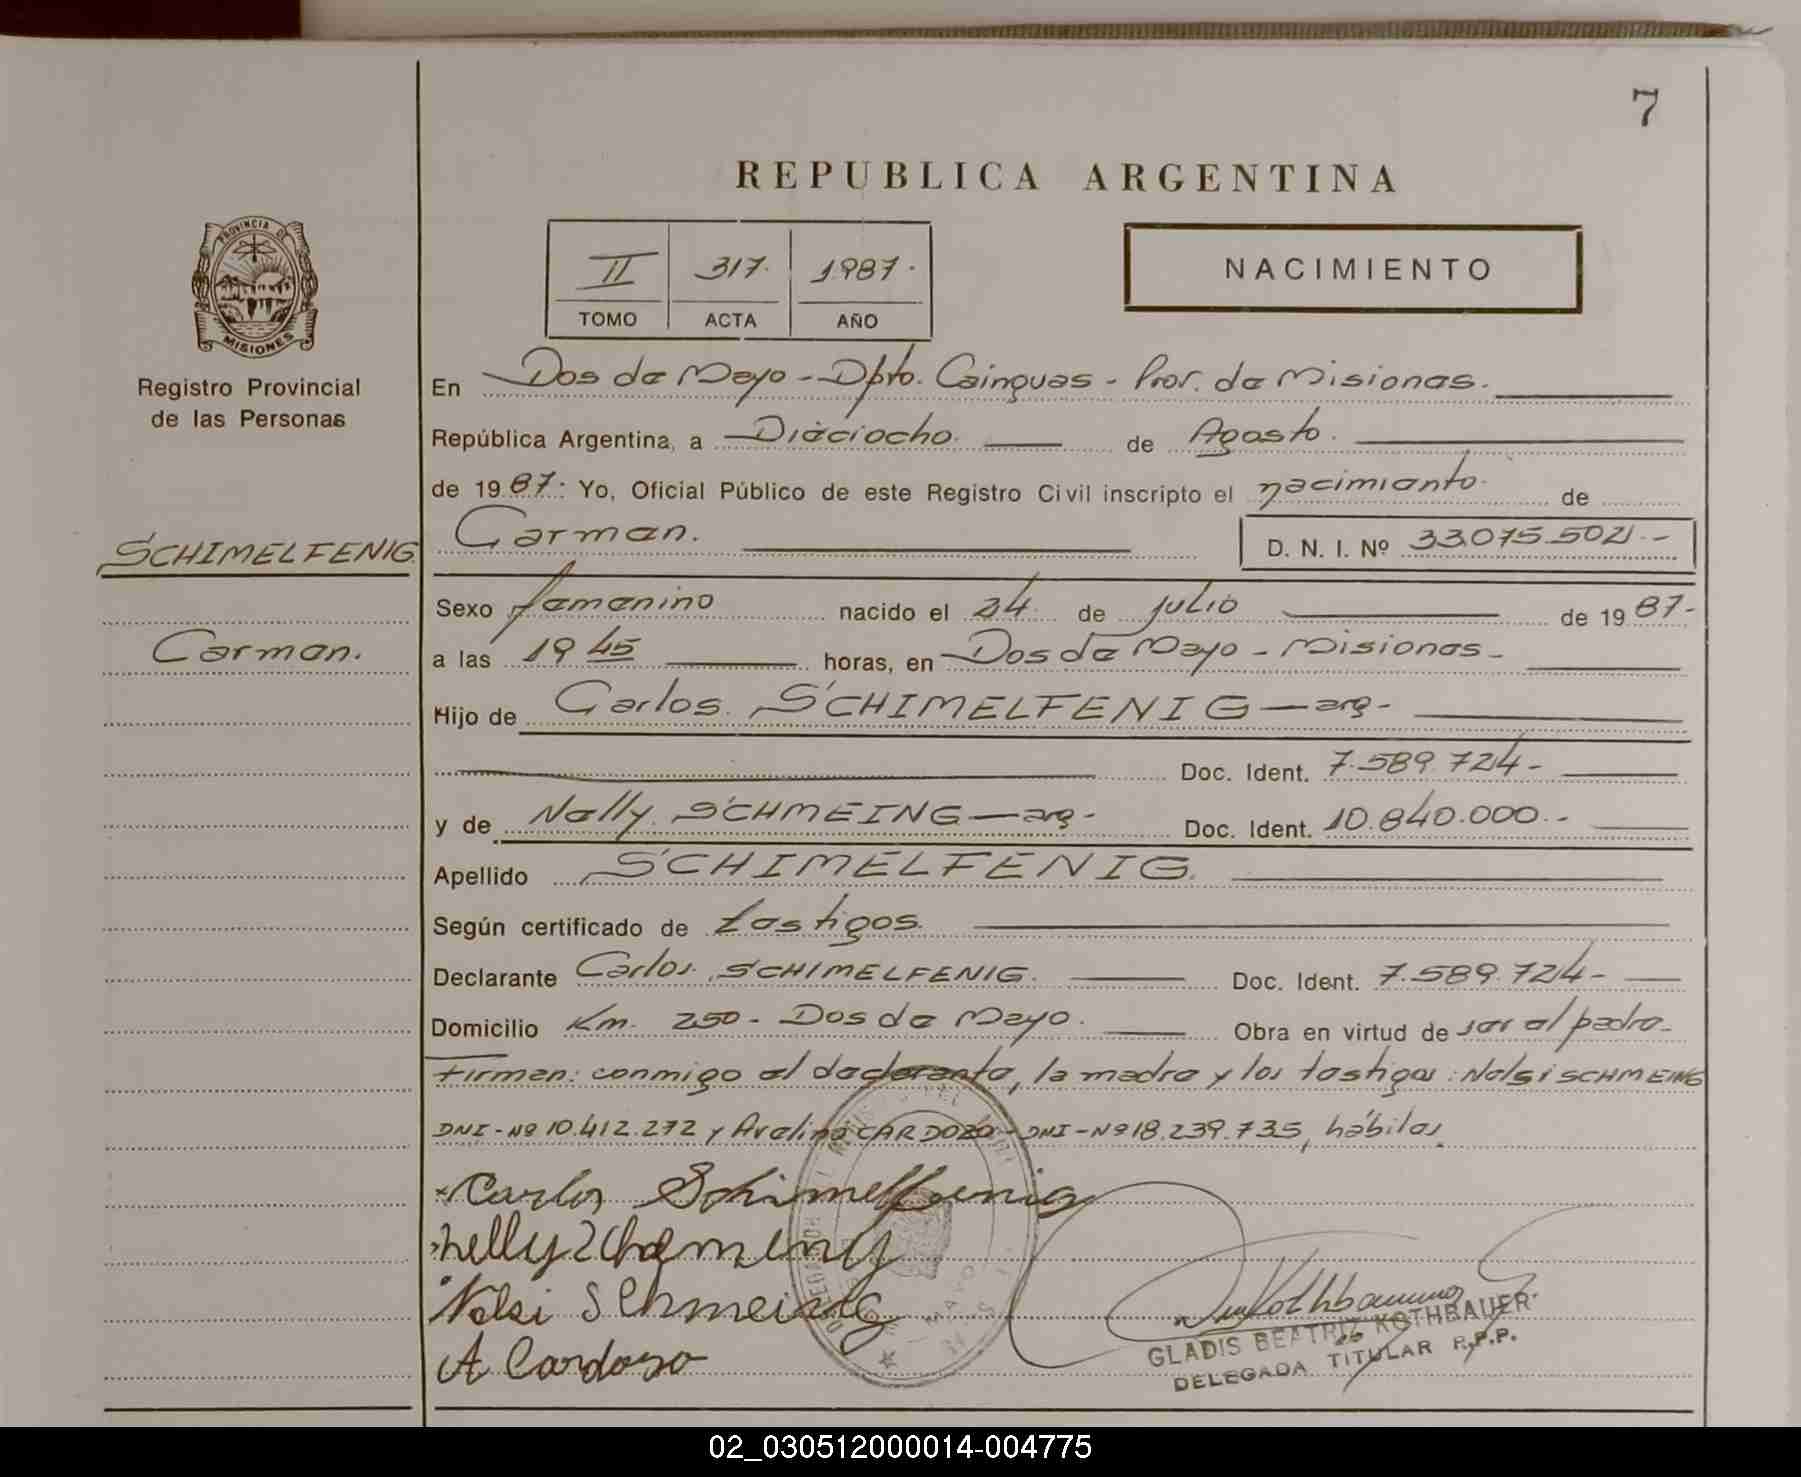 7
REPUBLICA ARGENTINA
PROVINCIA DE
MISIONES
II 317. 1987.
TOMO ACTA AÑO
NACIMIENTO
Registro Provincial
de las Personas
En Dos de Mayo - Dpto. Cainguas - Prov. de Misiones.
República Argentina, a Dieciocho. de Agosto.
de 19 87. Yo, Oficial Público de este Registro Civil inscripto el nacimiento de
SCHIMELFENIG
Carmen. D. N. I. Nº 33.075.502.-
Sexo femenino nacido el 24 de julio de 19 87.
Carmen.
a las 19 45 horas, en Dos de Mayo - Misiones -
Hijo de Carlos SCHIMELFENIG — arg -
Doc. Ident. 7.589.724 -
y de Nelly SCHMEING — arg - Doc. Ident. 10.840.000.-
Apellido SCHIMELFENIG.
Según certificado de testigos.
Declarante Carlos SCHIMELFENIG. Doc. Ident. 7.589.724 -
Domicilio Km. 250 - Dos de Mayo. Obra en virtud de ser el padre -
Firman: conmigo el declarante, la madre y los testigos: Nelsi SCHMEING
DNI - Nº 10.412.272 y Avelino CARDOZO - DNI - Nº 18.239.735, hábiles.
Carlos Schimelfenig
Nelsi Schmeing
A Cardozo
GLADIS BEATRIZ KOTHBAUER
DELEGADA TITULAR R.P.P.
02_030512000014-004775